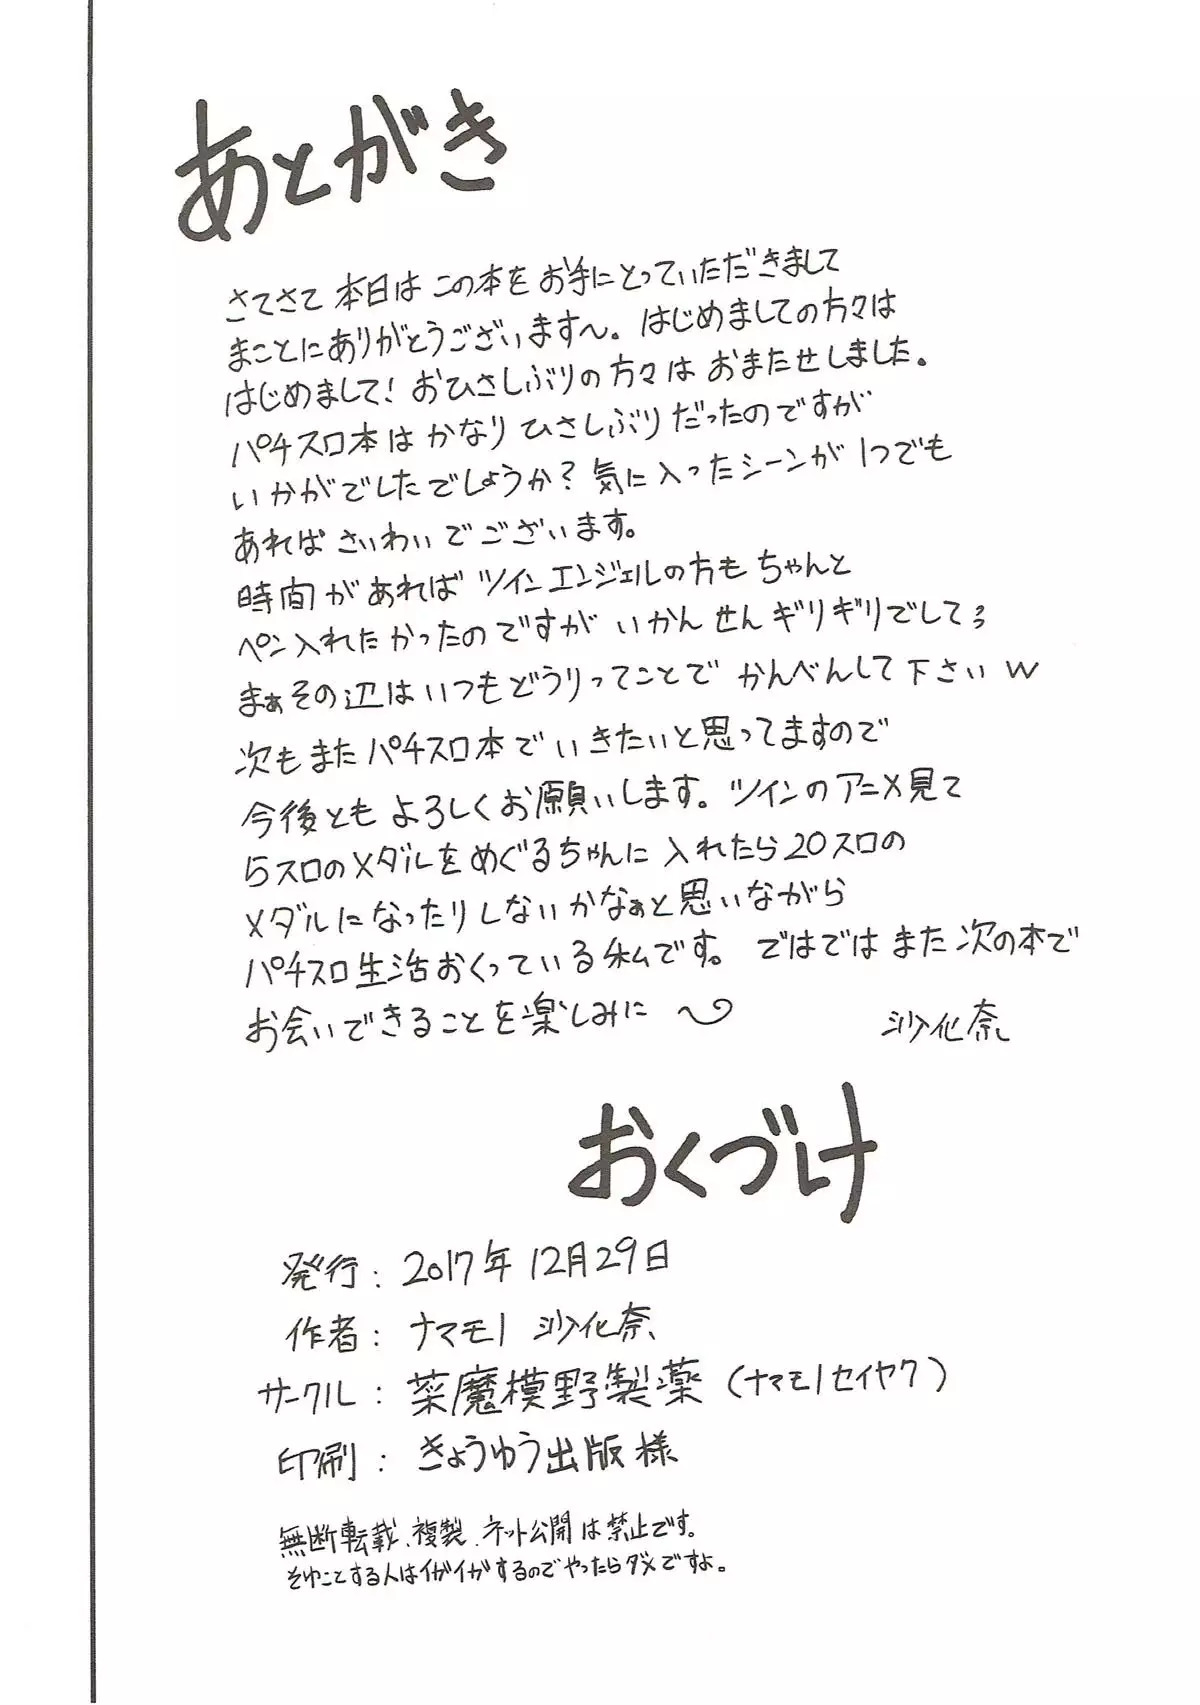 あとがき
さてさて本日はこの本をお手にとっていただきまして
まことにありがとうございます〜。はじめましての方々は
はじめまして！おひさしぶりの方々はおまたせしました。
パチスロ本はかなりひさしぶりだったのですが
いかがでしたでしょうか？気に入ったシーンが1つでも
あればさいわいでございます。
時間があればツインエンジェルの方もちゃんと
ペン入れたかったのですがいかんせんギリギリでして
まぁその辺はいつもどうりってことでかんべんして下さいw
次もまたパチスロ本でいきたいと思ってますので
今後ともよろしくお願いします。ツインのアニメ見て
5スロのメダルをめぐるちゃんに入れたら20スロの
メダルになったりしないかなぁと思いながら
パチスロ生活おくっている私です。ではではまた次の本で
お会いできることを楽しみに〜 沙化奈
おくづけ
発行：2017年12月29日
作者：ナマモノ 沙化奈
サークル：菜魔模野製薬（ナマモノセイヤク）
印刷：きょうゆう出版様
無断転載、複製、ネット公開は禁止です。
そゆことする人はイガイガするのでやったらダメですよ。